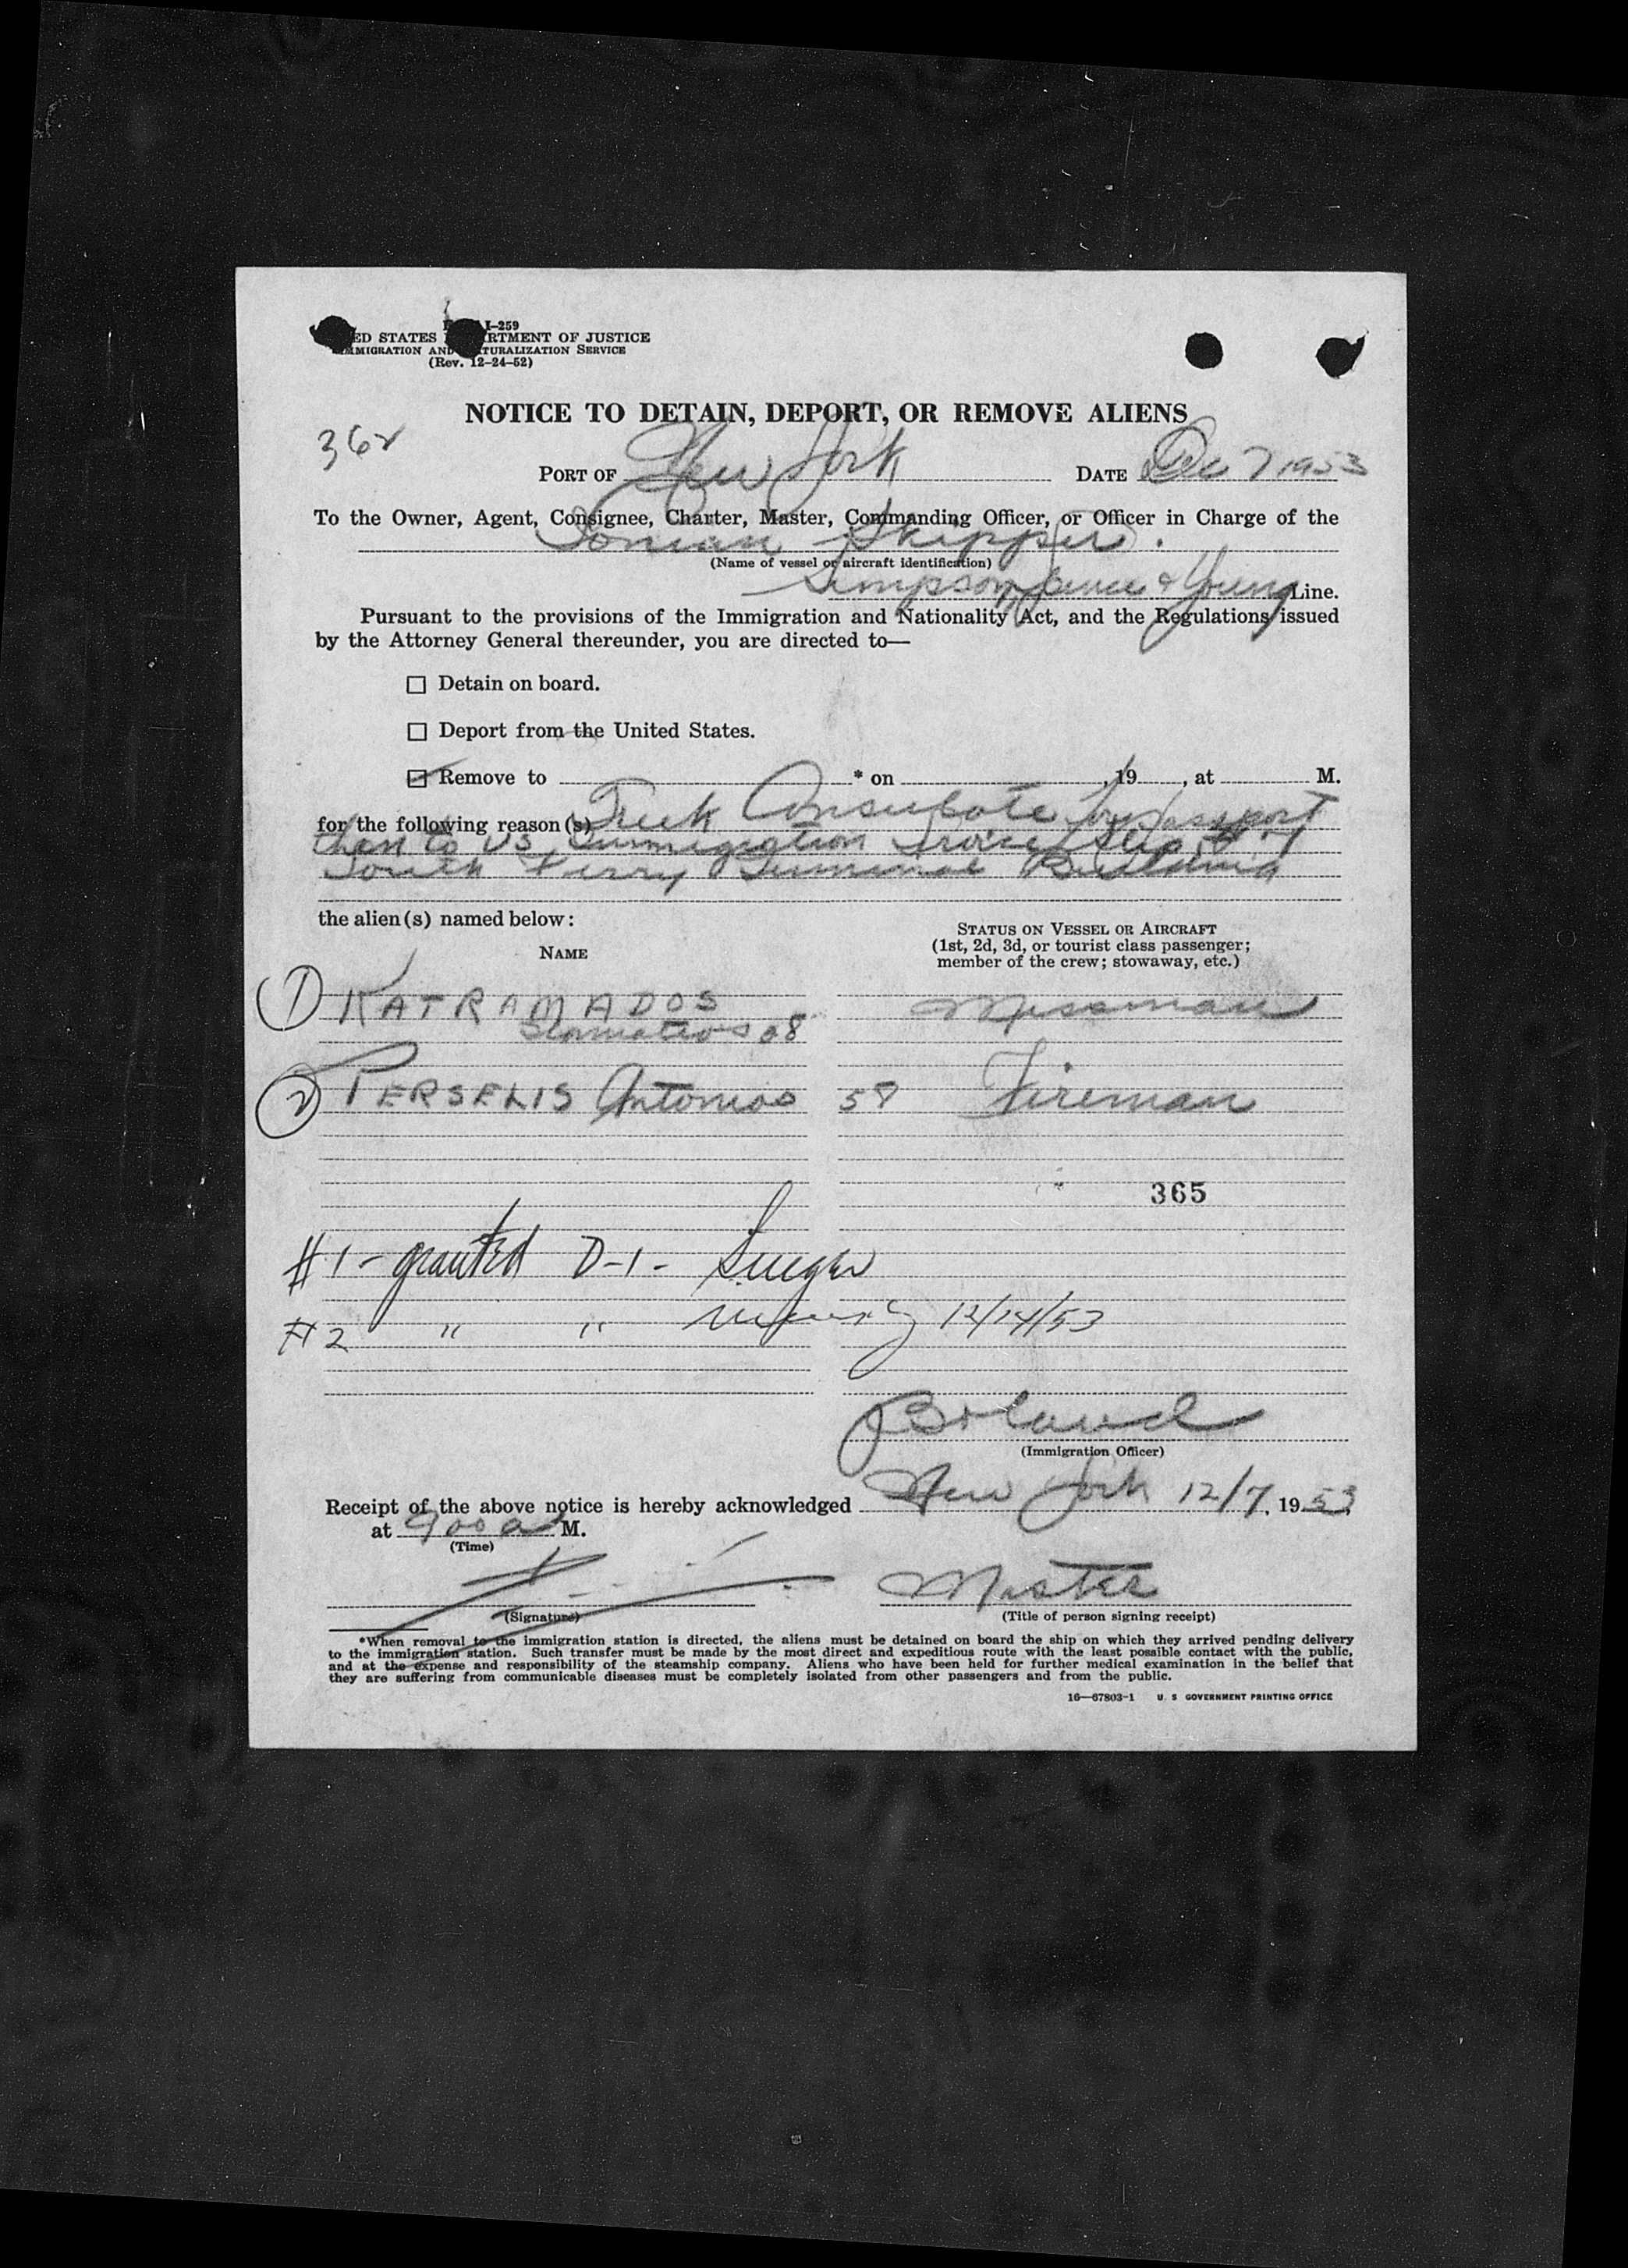 I-259
ED STATES RTMENT OF JUSTICE
MMIGRATION AND TURALIZATION SERVICE
(Rev. 12-24-52)
NOTICE TO DETAIN, DEPORT, OR REMOVE ALIENS
362
PORT OF New York DATE Dec 7 1953
To the Owner, Agent, Consignee, Charter, Master, Commanding Officer, or Officer in Charge of the
Ionian Skipper.
(Name of vessel or aircraft identification)
Simpson, Spence & Young Line.
Pursuant to the provisions of the Immigration and Nationality Act, and the Regulations issued
by the Attorney General thereunder, you are directed to—
☐ Detain on board.
☐ Deport from the United States.
☑ Remove to * on , 19 , at M.
for the following reason(s) Greek Consulate for Passport
then to US Immigration Service Slip # 7
South Ferry Terminal Building
the alien(s) named below:
NAME
STATUS ON VESSEL OR AIRCRAFT
(1st, 2d, 3d, or tourist class passenger;
member of the crew; stowaway, etc.)
① KATRAMADOS Messman
Stamatios 08
② PERSELIS Antonios 58 Fireman
365
#1 - granted D-1 -
#2 " " 12/14/53
Boland
(Immigration Officer)
Receipt of the above notice is hereby acknowledged New York 12/7, 1953
at 900 a M.
(Time)
Master
(Signature) (Title of person signing receipt)
*When removal to the immigration station is directed, the aliens must be detained on board the ship on which they arrived pending delivery
to the immigration station. Such transfer must be made by the most direct and expeditious route with the least possible contact with the public,
and at the expense and responsibility of the steamship company. Aliens who have been held for further medical examination in the belief that
they are suffering from communicable diseases must be completely isolated from other passengers and from the public.
16—67803-1 U. S GOVERNMENT PRINTING OFFICE